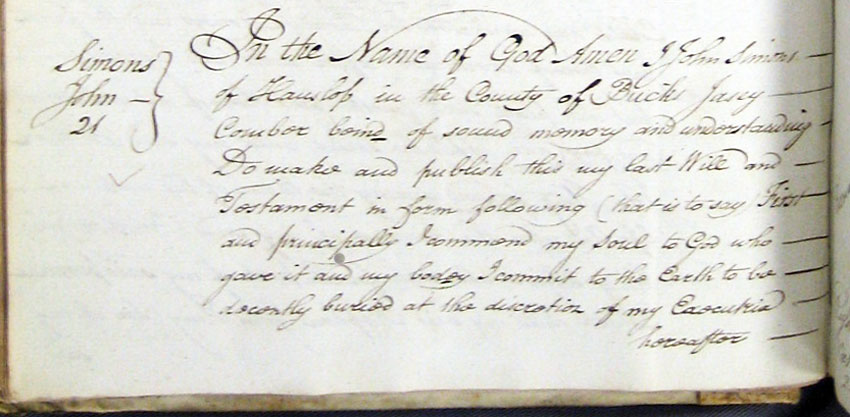 Simons
John —
21
In the Name of God Amen I John Simons —
of Hanslop in the County of Bucks Jasey —
Comber beind of sound memory and understanding
Do make and publish this my last Will and —
Testament in form following (that is to say) First
and principally I commend my Soul to God who —
gave it and my bodey I commit to the Earth to be —
decently buried at the discretion of my Executrix —
hereafter —